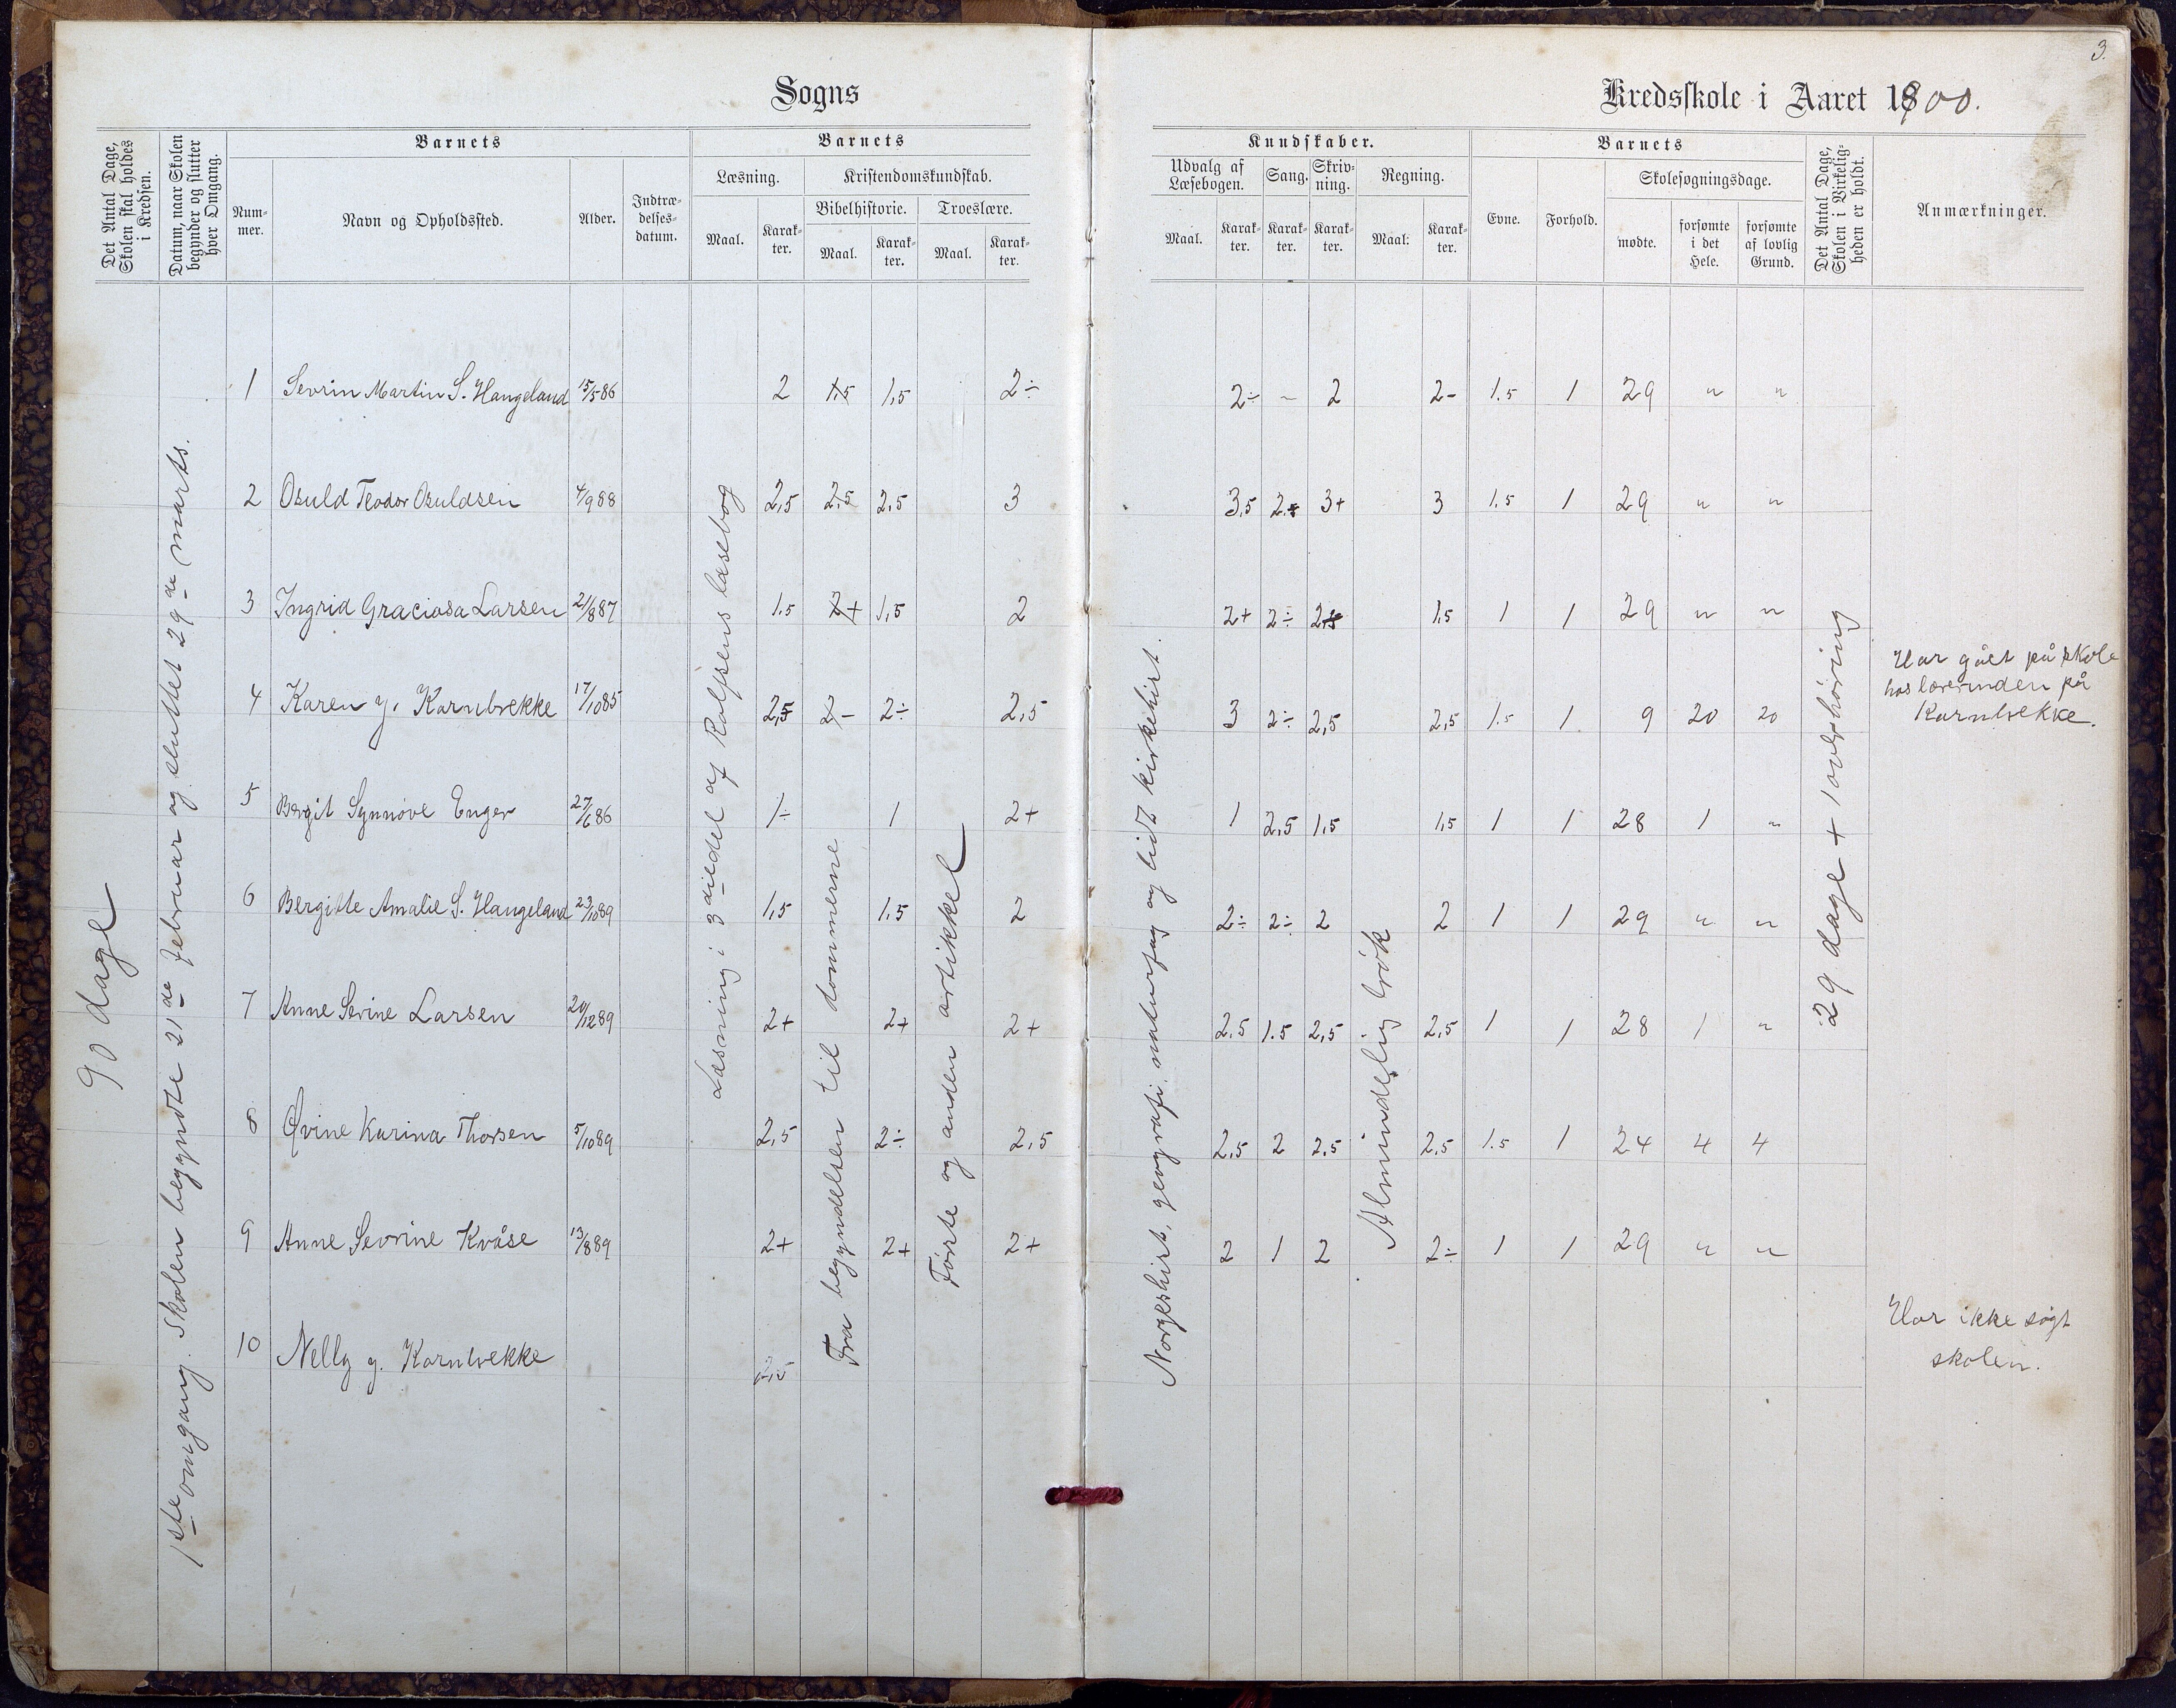 3.
Sogns
Kredsskole i Aaret 1900.
Det Antal Dage, Skolen skal holdes i Kredsen.
Datum, naar Skolen begynder og slutter hver Omgang.
Barnets
Num-mer.
Navn og Opholdssted.
Alder.
Indtræ-delses-datum.
Barnets
Læsning.
Maal.
Karak-ter.
Kristendomskundskab.
Bibelhistorie.
Maal.
Karak-ter.
Troeslære.
Maal.
Karak-ter.
Kundskaber.
Udvalg af Læsebogen.
Maal.
Karak-ter.
Sang.
Karak-ter.
Skriv-ning.
Karak-ter.
Regning.
Maal.
Karak-ter.
Barnets
Evne.
Forhold.
Skolesøgningsdage.
mødte.
forsømte i det Hele.
forsømte af lovlig Grund.
Det Antal Dage, Skolen i Virkelig-heden er holdt.
Anmærkninger.
90 dage
1ste omgang. Skolen begyndte 21de februar og sluttet 29de marts.
Læsning i 3die del af Rolfsens læsebog
Fra begyndelsen til dommerne
Første og anden artikkel
Norgeshist, geografi, naturfag og lidt kirkehist.
Almindelig brøk
29 dage + 1 overhøring
1 Sevrin Martin S. Haugeland 15/5 86 2 1,5 1,5 2÷ 2÷ – 2 2- 1.5 1 29 " "
2 Osuld Teodor Osuldsen 4/9 88 2,5 2,5 2,5 3 3,5 2÷ 3+ 3 1.5 1 29 " "
3 Ingrid Graciosa Larsen 21/8 87 1.5 2+ 1,5 2 2+ 2÷ 2+ 1,5 1 1 29 " "
4 Karen g. Kornbrekke 17/10 85 2,5 2- 2÷ 2,5 3 2÷ 2,5 2,5 1.5 1 9 20 20
Har gået på skole
hos lærerinden på
Kornbrekke.
5 Bergit Synnøve Enger 27/6 86 1÷ 1 2+ 1 2,5 1,5 1,5 1 1 28 1 "
6 Bergitte Amalie S. Haugeland 23/10 89 1,5 1.5 2 2÷ 2÷ 2 2 1 1 29 " "
7 Anne Serine Larsen 20/12 89 2+ 2+ 2+ 2.5 1.5 2,5 2,5 1 1 28 1 "
8 Øvine Karina Thorsen 5/10 89 2,5 2÷ 2,5 2,5 2 2,5 2,5 1.5 1 24 4 4
9 Anne Sevrine Kvåse 13/8 89 2+ 2+ 2+ 2 1 2 2÷ 1 1 29 " "
10 Nelly g. Kornbrekke 2,5
Har ikke søgt
skolen.